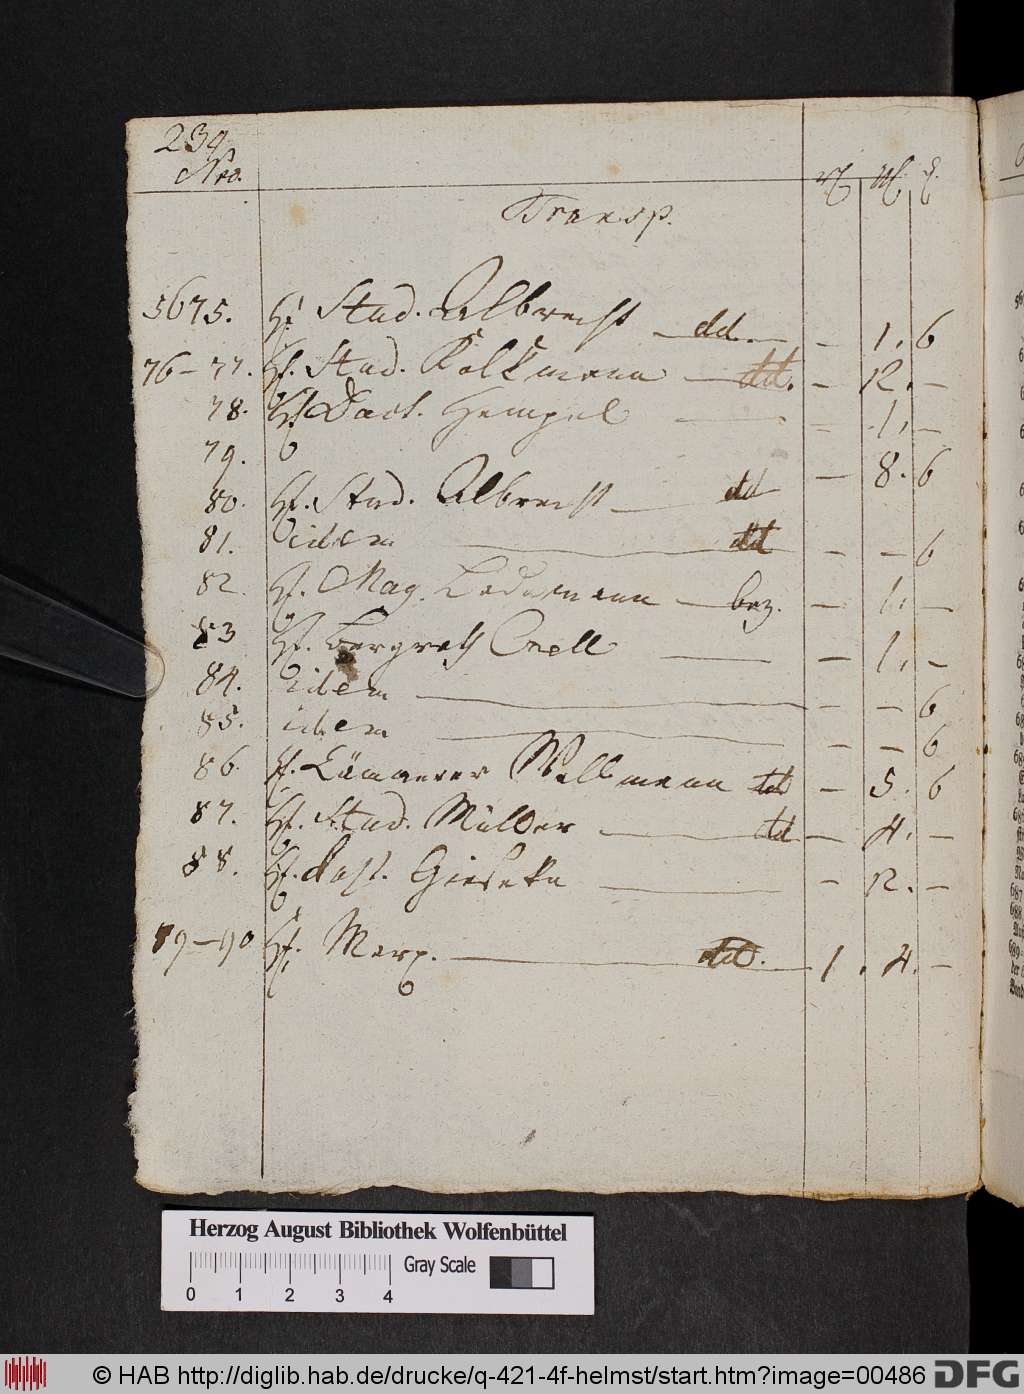 239
Nro.
Transp.
5675. H. Stud. Albrecht — dd. — – 1. 6
76–77. H. Stud. Volkmann — dd. – 12. –
78. H. Doct. Hempel — – 1. –
79. – 8. 6
80. H. Stud. Albrecht — dd
81. idem — dd – – 6
82. H. Mag. Ledermann — bez. – 1. –
83 H. Bergrath Crell — – 1. –
84. idem — – – 6
85. idem — – – 6
86. H. Cämmerer Willmann dd – 5. 6
87. H. Stud. Müller — dd – 4. –
88. H. Past. Gieseke — – 12. –
89–90 H. Merx. — dd. 1. 4. –
Herzog August Bibliothek Wolfenbüttel
Gray Scale
0 1 2 3 4
© HAB http://diglib.hab.de/drucke/q-421-4f-helmst/start.htm?image=00486 DFG